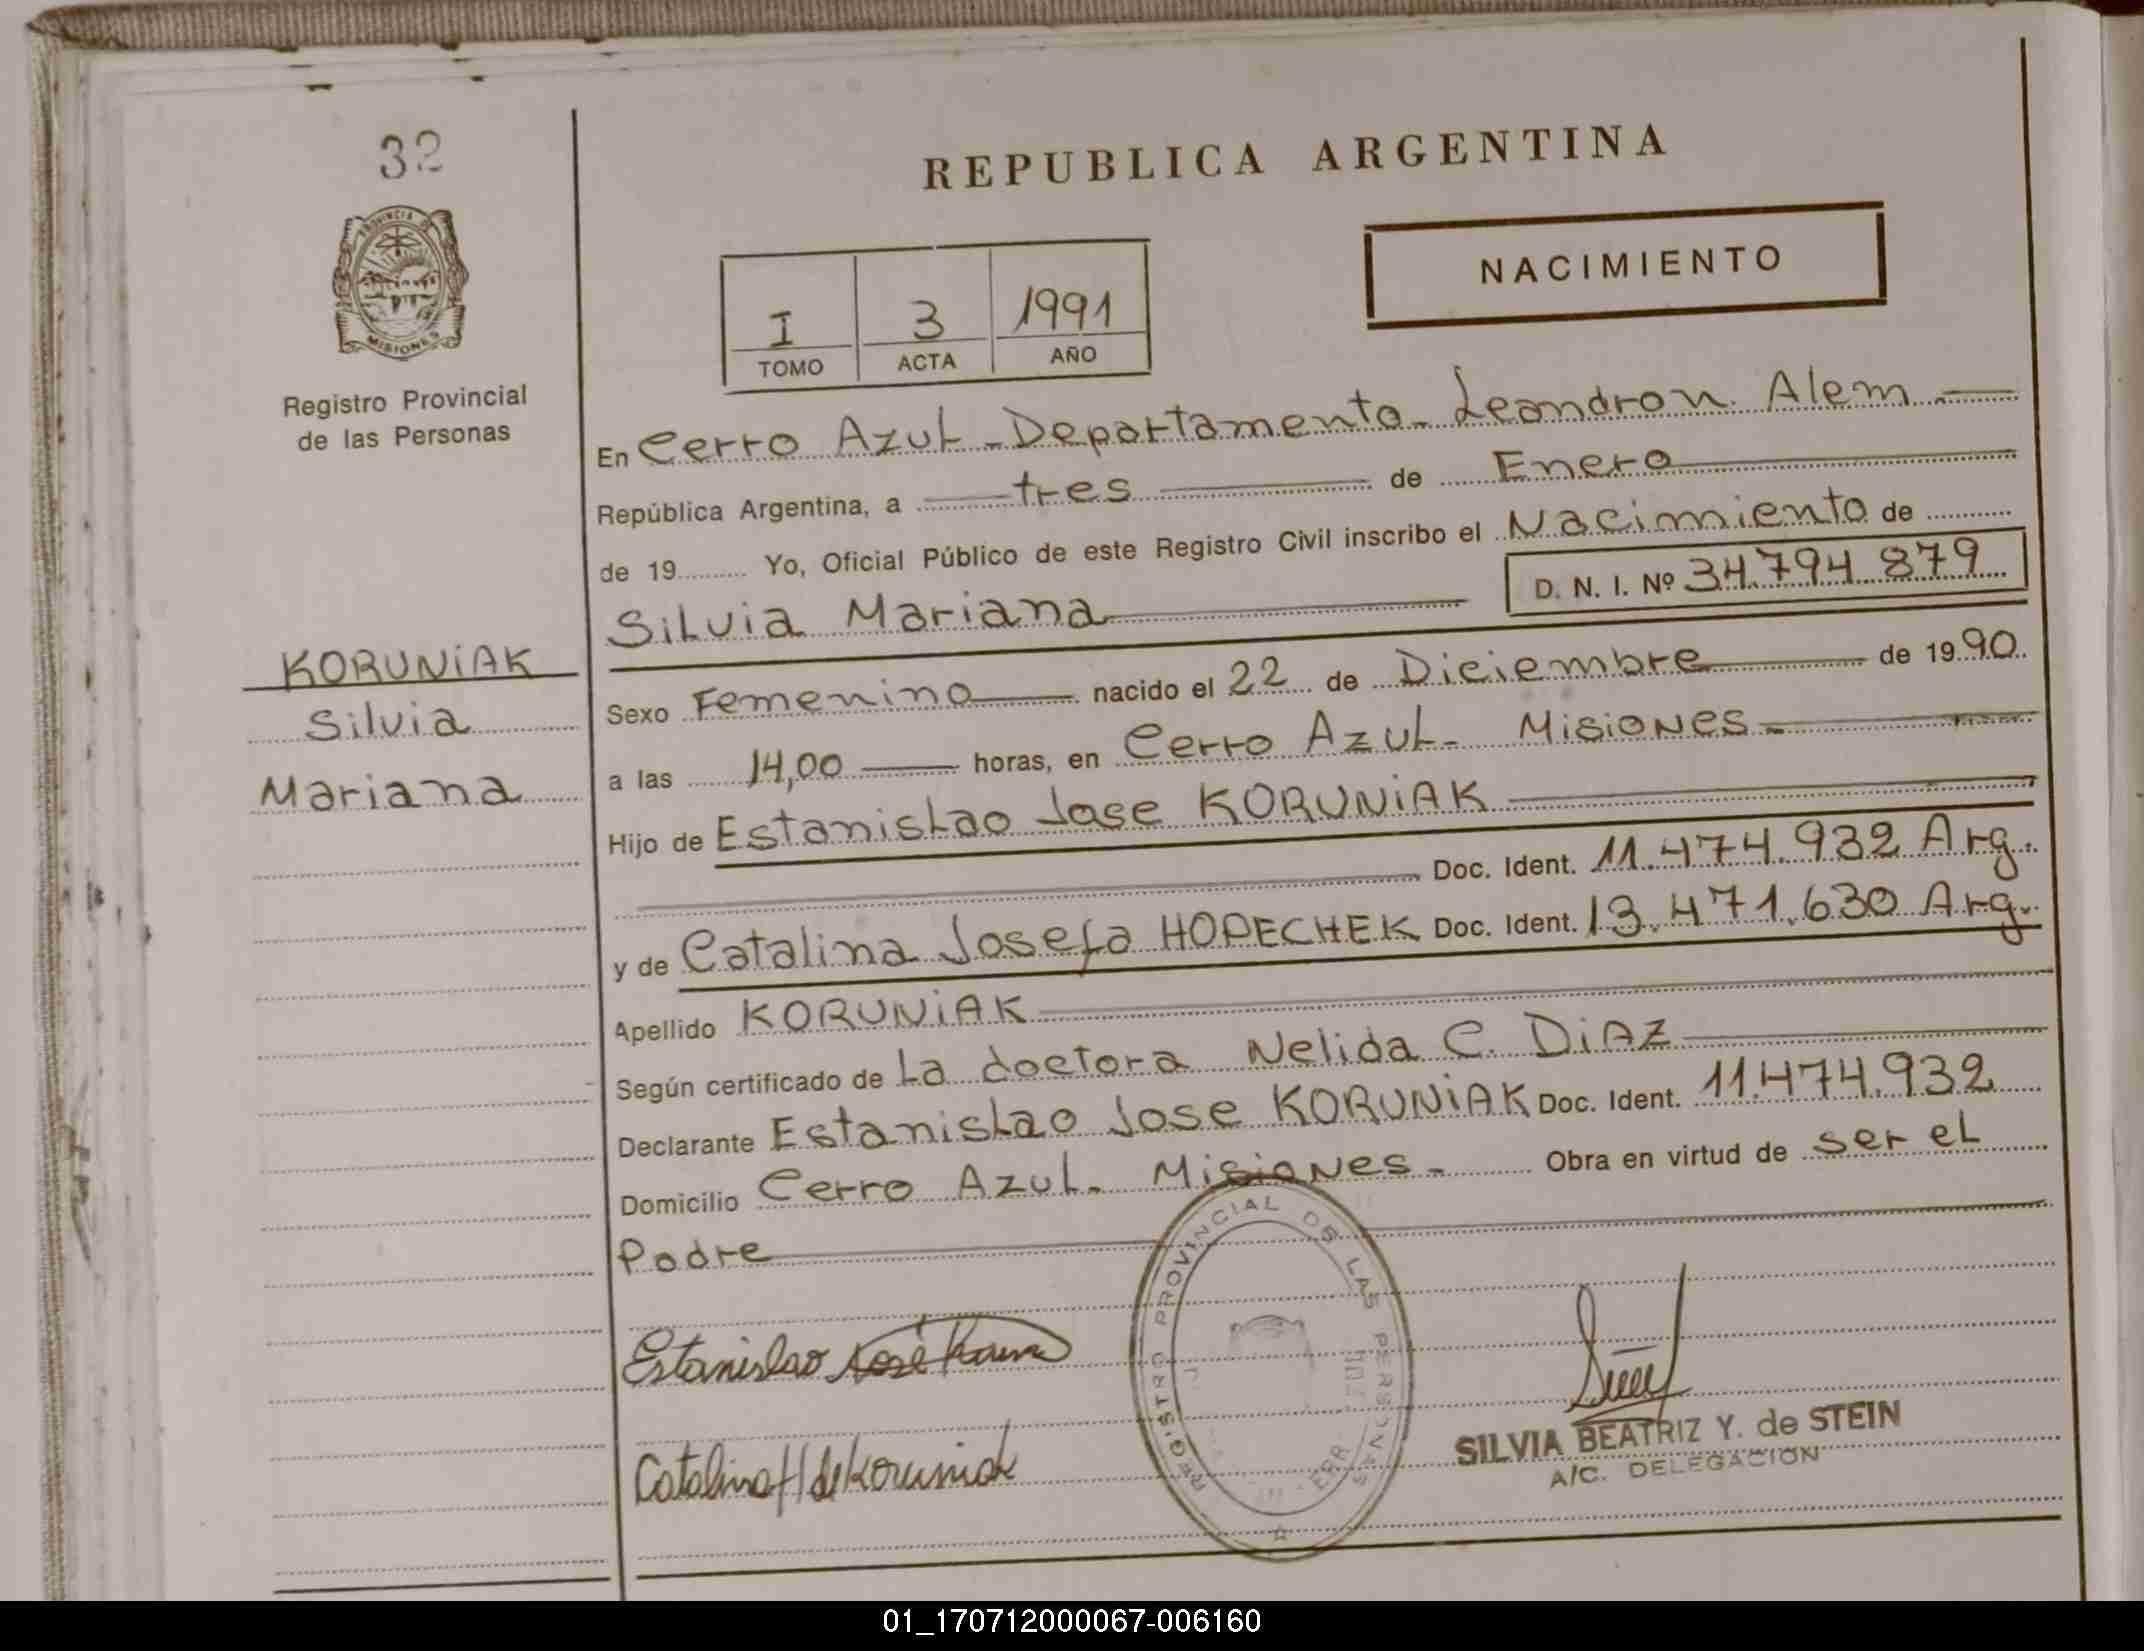 32
PROVINCIA DE
MISIONES
Registro Provincial
de las Personas
KORUNiAK
Silvia
Mariana
REPUBLICA ARGENTINA
I 3 1991
TOMO ACTA AÑO
NACIMIENTO
En Cerro Azul - Departamento - Leandron Alem
República Argentina, a tres de Enero
de 19 Yo, Oficial Público de este Registro Civil inscribo el Nacimiento de
D. N. I. Nº 34.794.879
Silvia Mariana
Sexo Femenino nacido el 22 de Diciembre de 1990
a las 14,00 horas, en Cerro Azul - Misiones -
Hijo de Estanislao Jose KORUNiAK
Doc. Ident. 11.474.932 Arg.
y de Catalina Josefa HOPECHEK Doc. Ident. 13.471.630 Arg.
Apellido KORUNiAK
Según certificado de La doctora Nelida C. DiAZ
Declarante Estanislao Jose KORUNiAK Doc. Ident. 11.474.932
Domicilio Cerro Azul - Misiones - Obra en virtud de ser el
Padre
REGISTRO PROVINCIAL DE LAS PERSONAS
Estanislao José
Catalina H de Koruniak
SILVIA BEATRIZ Y. de STEIN
A/C. DELEGACION
01_170712000067-006160